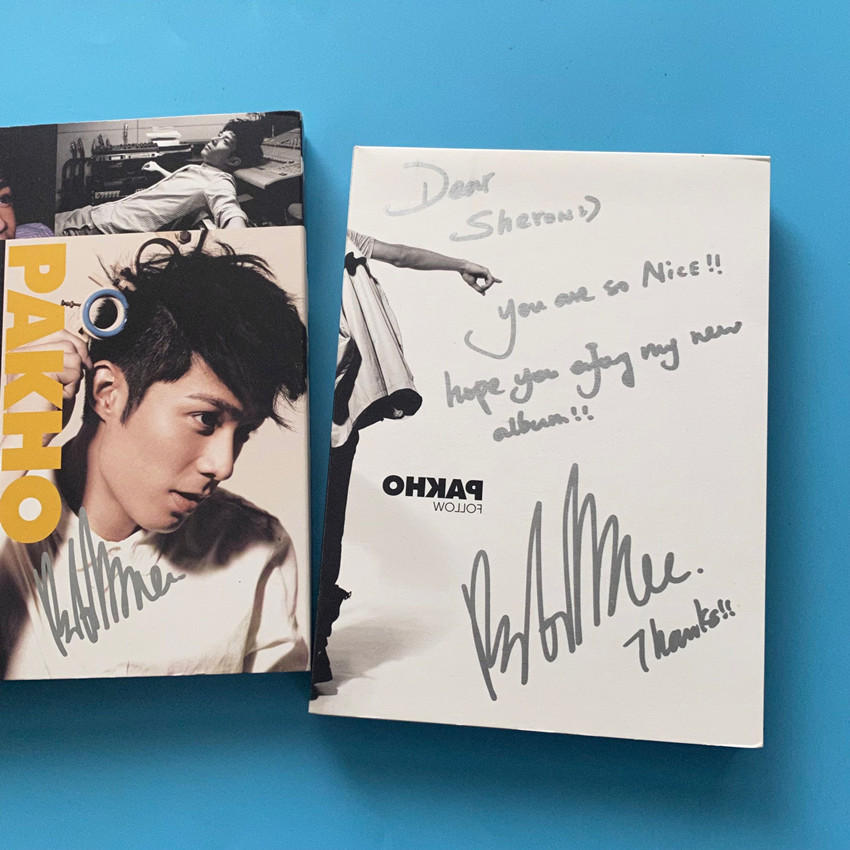 PAKHO
Dear
Sheron :)
You are so Nice!!
hope you enjoy my new
album!!
PAKHO
FOLLOW
Thanks!!